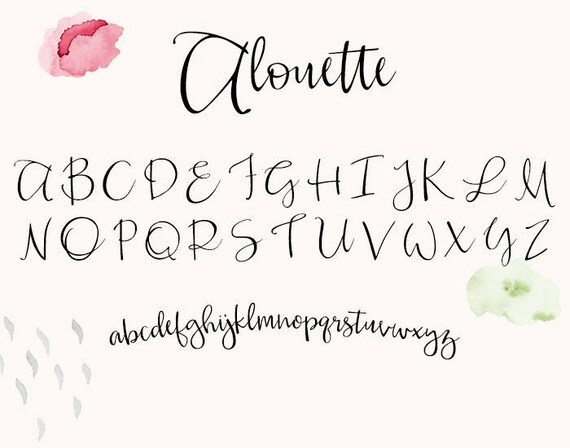 Alouette
ABCDEFGHIJKLM
NOPQRSTUVWXYZ
abcdefghijklmnopqrstuvwxyz